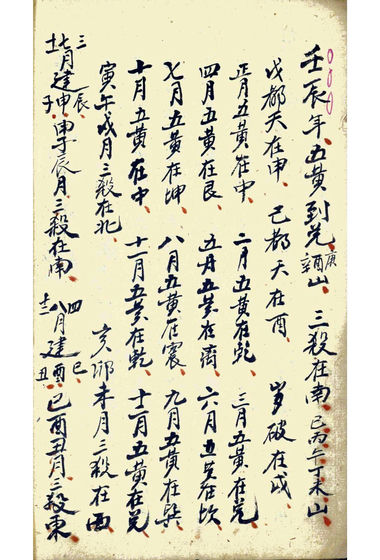 壬辰年五黃到兑庚酉辛山 三殺在南巳丙午丁未山
戊都天在申 己都天在酉 岁破在戌
正月五黃在中 二月五黃在乾 三月五黃在兑
四月五黃在艮 五月五黃在离 六月五黃在坎
七月五黃在坤 八月五黃在震 九月五黃在巽
十月五黃在中 十一月五黃在乾 十二月五黃在兑
寅午戌月三殺在北 亥卯未月三殺在西
三七十一月建辰申子申子辰月三殺在南 四八十二月建巳酉丑巳酉丑月三殺東